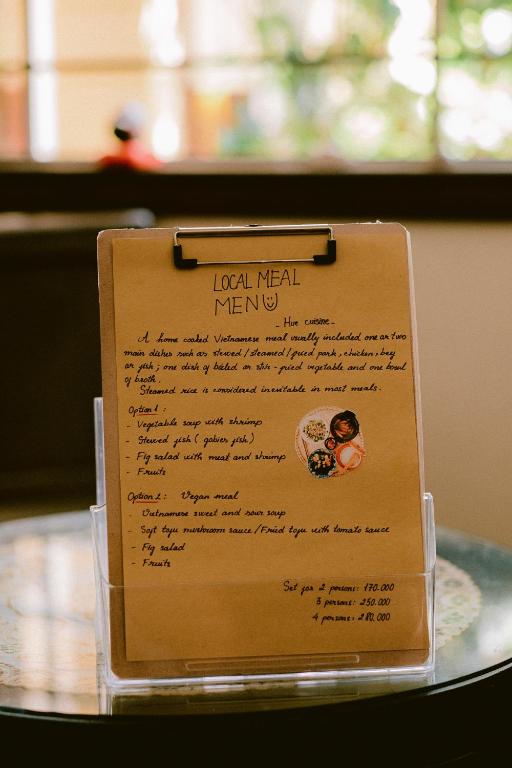 LOCAL MEAL
MENU
- Hue cuisine -
A home cooked Vietnamese meal usually included one or two
main dishes such as stewed/steamed/fried pork, chicken, beef
or fish; one dish of boiled or stir-fried vegetable and one bowl
of broth.
Steamed rice is considered inevitable in most meals.
Option 1:
- Vegetable soup with shrimp
- Stewed fish (gobies fish)
- Fig salad with meat and shrimp
- Fruits
Option 2: Vegan meal
- Vietnamese sweet and sour soup
- Soft tofu mushroom sauce/Fried tofu with tomato sauce
- Fig salad
- Fruits
Set for 2 persons: 170.000
3 persons: 250.000
4 persons: 280.000